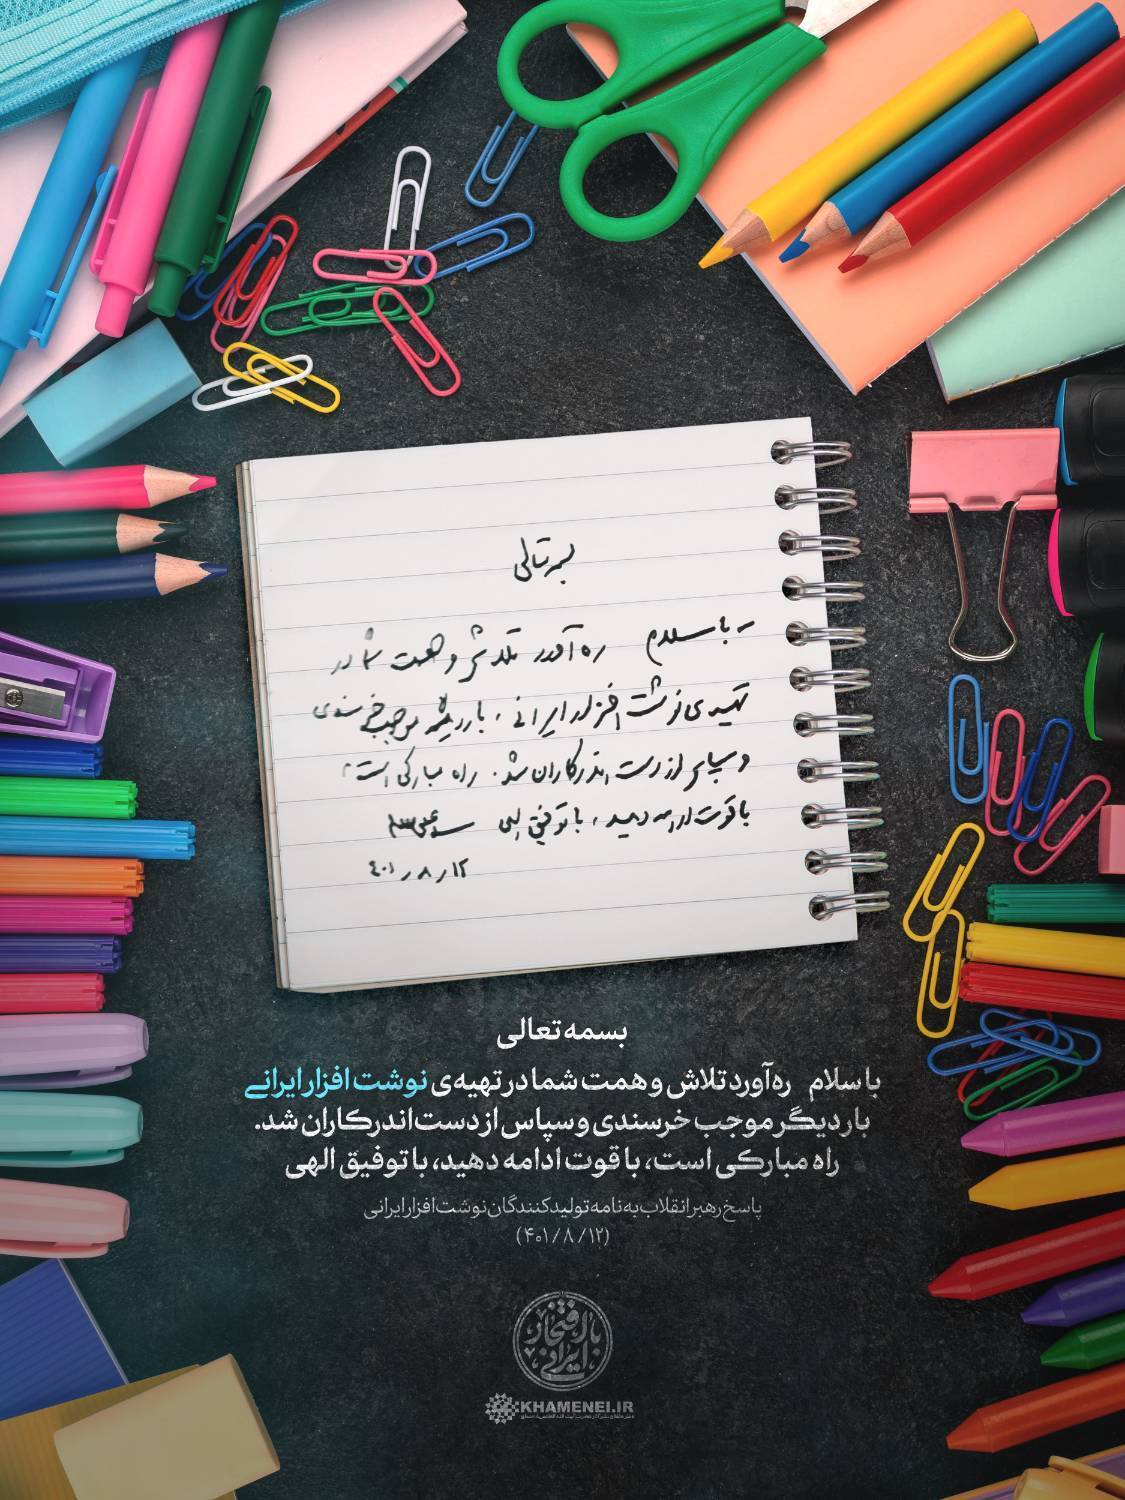 بسمه تعالی
- با سلام ره‌آورد تلاش و همت شما در
تهیه‌ی نوشت افزار ایرانی، بار دیگر موجب خرسندی
و سپاس از دست اندرکاران شد. راه مبارکی است،
با قوت ادامه دهید، با توفیق الهی
۱۲ر۸ر۴۰۱
بسمه تعالی
با سلام ره‌آورد تلاش و همت شما در تهیه‌ی نوشت افزار ایرانی
بار دیگر موجب خرسندی و سپاس از دست‌اندرکاران شد.
راه مبارکی است، با قوت ادامه دهید، با توفیق الهی
پاسخ رهبر انقلاب به نامه تولیدکنندگان نوشت افزار ایرانی
(۴۰۱/۸/۱۲)
با افتخار
ایرانی
KHAMENEI.IR